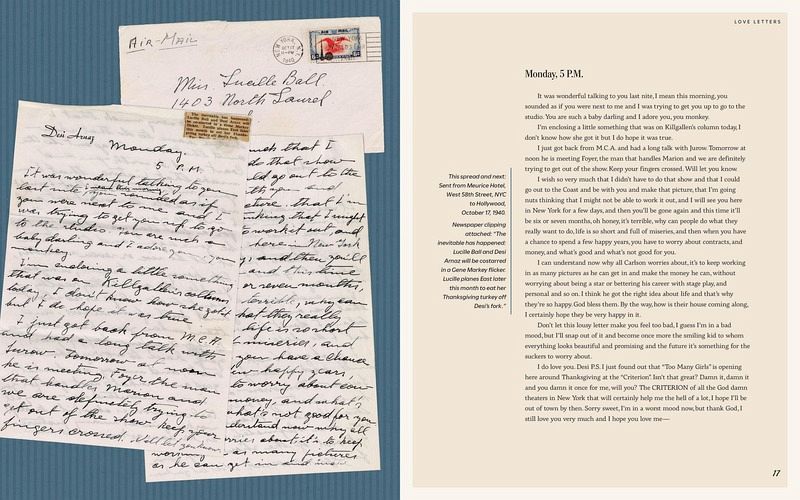 AIR-MAIL
NEW YORK, N.Y.
OCT 17
1940
Miss Lucille Ball
1403 North Laurel
The inevitable has happened:
Lucille Ball and Desi Arnaz will
be costarred in a Gene Markey
flicker. Lucille planes East later
Desi Arnaz
Monday,
5 P.M.
It was wonderful talking to you
last nite, I mean this morning,
you sounded as if
you were next to me and I
was trying to get you up to go
to the studio. You are such a
baby darling and I adore you, you
monkey.
I'm enclosing a little something
that was on Killgallen's column
today, I don't know how she got it
but I do hope it was true.
I just got back from M.C.A.
and had a long talk with
Jurow. Tomorrow at noon
he is meeting Foyer, the man
that handles Marion and
we are definitely trying to
get out of the show. Keep your
fingers crossed. Will let you know.
much that I
do that show
ld go out to the
with you and
picture, that I'm
thinking that I might
work it out, and
here in New York
and then you'll
or seven months,
terrible, why can
what they really
life is so short
miseries, and
you have a chance
happy years,
to worry about con-
money, and what's
what's not good for you
understand now why all
worries about, it's to keep
working as many pictures
as he can get in and make
LOVE LETTERS
Monday, 5 P.M.
It was wonderful talking to you last nite, I mean this morning, you
sounded as if you were next to me and I was trying to get you up to go to the
studio. You are such a baby darling and I adore you, you monkey.
I'm enclosing a little something that was on Killgallen's column today, I
don't know how she got it but I do hope it was true.
I just got back from M.C.A. and had a long talk with Jurow. Tomorrow at
noon he is meeting Foyer, the man that handles Marion and we are definitely
trying to get out of the show. Keep your fingers crossed. Will let you know.
I wish so very much that I didn't have to do that show and that I could
go out to the Coast and be with you and make that picture, that I'm going
nuts thinking that I might not be able to work it out, and I will see you here
in New York for a few days, and then you'll be gone again and this time it'll
be six or seven months, oh honey, it's terrible, why can people do what they
really want to do, life is so short and full of miseries, and then when you have
a chance to spend a few happy years, you have to worry about contracts, and
money, and what's good and what's not good for you.
I can understand now why all Carlson worries about, it's to keep working
in as many pictures as he can get in and make the money he can, without
worrying about being a star or bettering his career with stage play, and
personal and so on. I think he got the right idea about life and that's why
they're so happy. God bless them. By the way, how is their house coming along,
I certainly hope they be very happy in it.
Don't let this lousy letter make you feel too bad, I guess I'm in a bad
mood, but I'll snap out of it and become once more the smiling kid to whom
everything looks beautiful and promising and the future it's something for the
suckers to worry about.
I do love you. Desi P.S. I just found out that "Too Many Girls" is opening
here around Thanksgiving at the "Criterion". Isn't that great? Damn it, damn it
and you damn it once for me, will you? The CRITERION of all the God damn
theaters in New York that will certainly help me the hell of a lot, I hope I'll be
out of town by then. Sorry sweet, I'm in a worst mood now, but thank God, I
still love you very much and I hope you love me—
This spread and next:
Sent from Meurice Hotel,
West 58th Street, NYC
to Hollywood,
October 17, 1940.
Newspaper clipping
attached: "The
inevitable has happened:
Lucille Ball and Desi
Arnaz will be costarred
in a Gene Markey flicker.
Lucille planes East later
this month to eat her
Thanksgiving turkey off
Desi's fork."
17